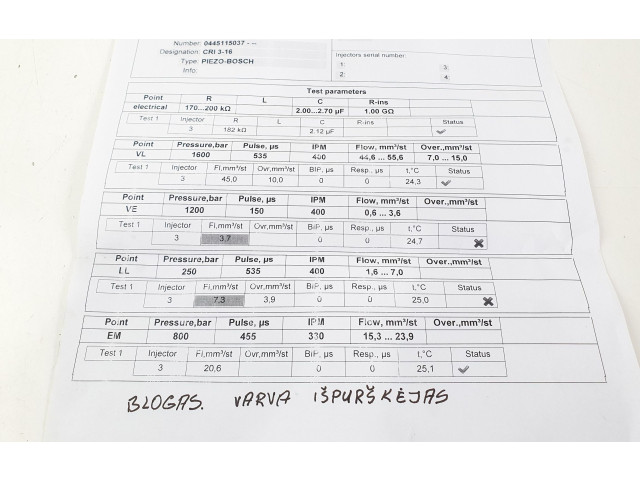 Number: 0445115037 - --
Designation: CRI 3-16
Type: PIEZO-BOSCH
Info:
Injectors serial number:
1 3
2 4
Test parameters
Point R L C R-ins
electrical 170...200 kΩ 2.00...2.70 µF 1.00 GΩ
Test 1 Injector R L C R-ins Status
3 182 kΩ 2.12 µF ✓
Point Pressure,bar Pulse, µs IPM Flow, mm³/st Over.,mm³/st
VL 1600 535 400 44,6 ... 55,6 7,0 ... 15,0
Test 1 Injector Fl,mm³/st Ovr,mm³/st BIP, µs Resp., µs t,°C Status
3 45,0 10,0 0 0 24,3 ✓
Point Pressure,bar Pulse, µs IPM Flow, mm³/st Over.,mm³/st
VE 1200 150 400 0,6 ... 3,6
Test 1 Injector Fl,mm³/st Ovr,mm³/st BIP, µs Resp., µs t,°C Status
3 3,7 0 0 24,7 ✖
Point Pressure,bar Pulse, µs IPM Flow, mm³/st Over.,mm³/st
LL 250 535 400 1,6 ... 7,0
Test 1 Injector Fl,mm³/st Ovr,mm³/st BIP, µs Resp., µs t,°C Status
3 7,3 3,9 0 0 25,0 ✖
Point Pressure,bar Pulse, µs IPM Flow, mm³/st Over.,mm³/st
EM 800 455 330 15,3 ... 23,9
Test 1 Injector Fl,mm³/st Ovr,mm³/st BIP, µs Resp., µs t,°C Status
3 20,6 0 0 25,1 ✓
BLOGAS. VARVA IŠPURŠKĖJAS